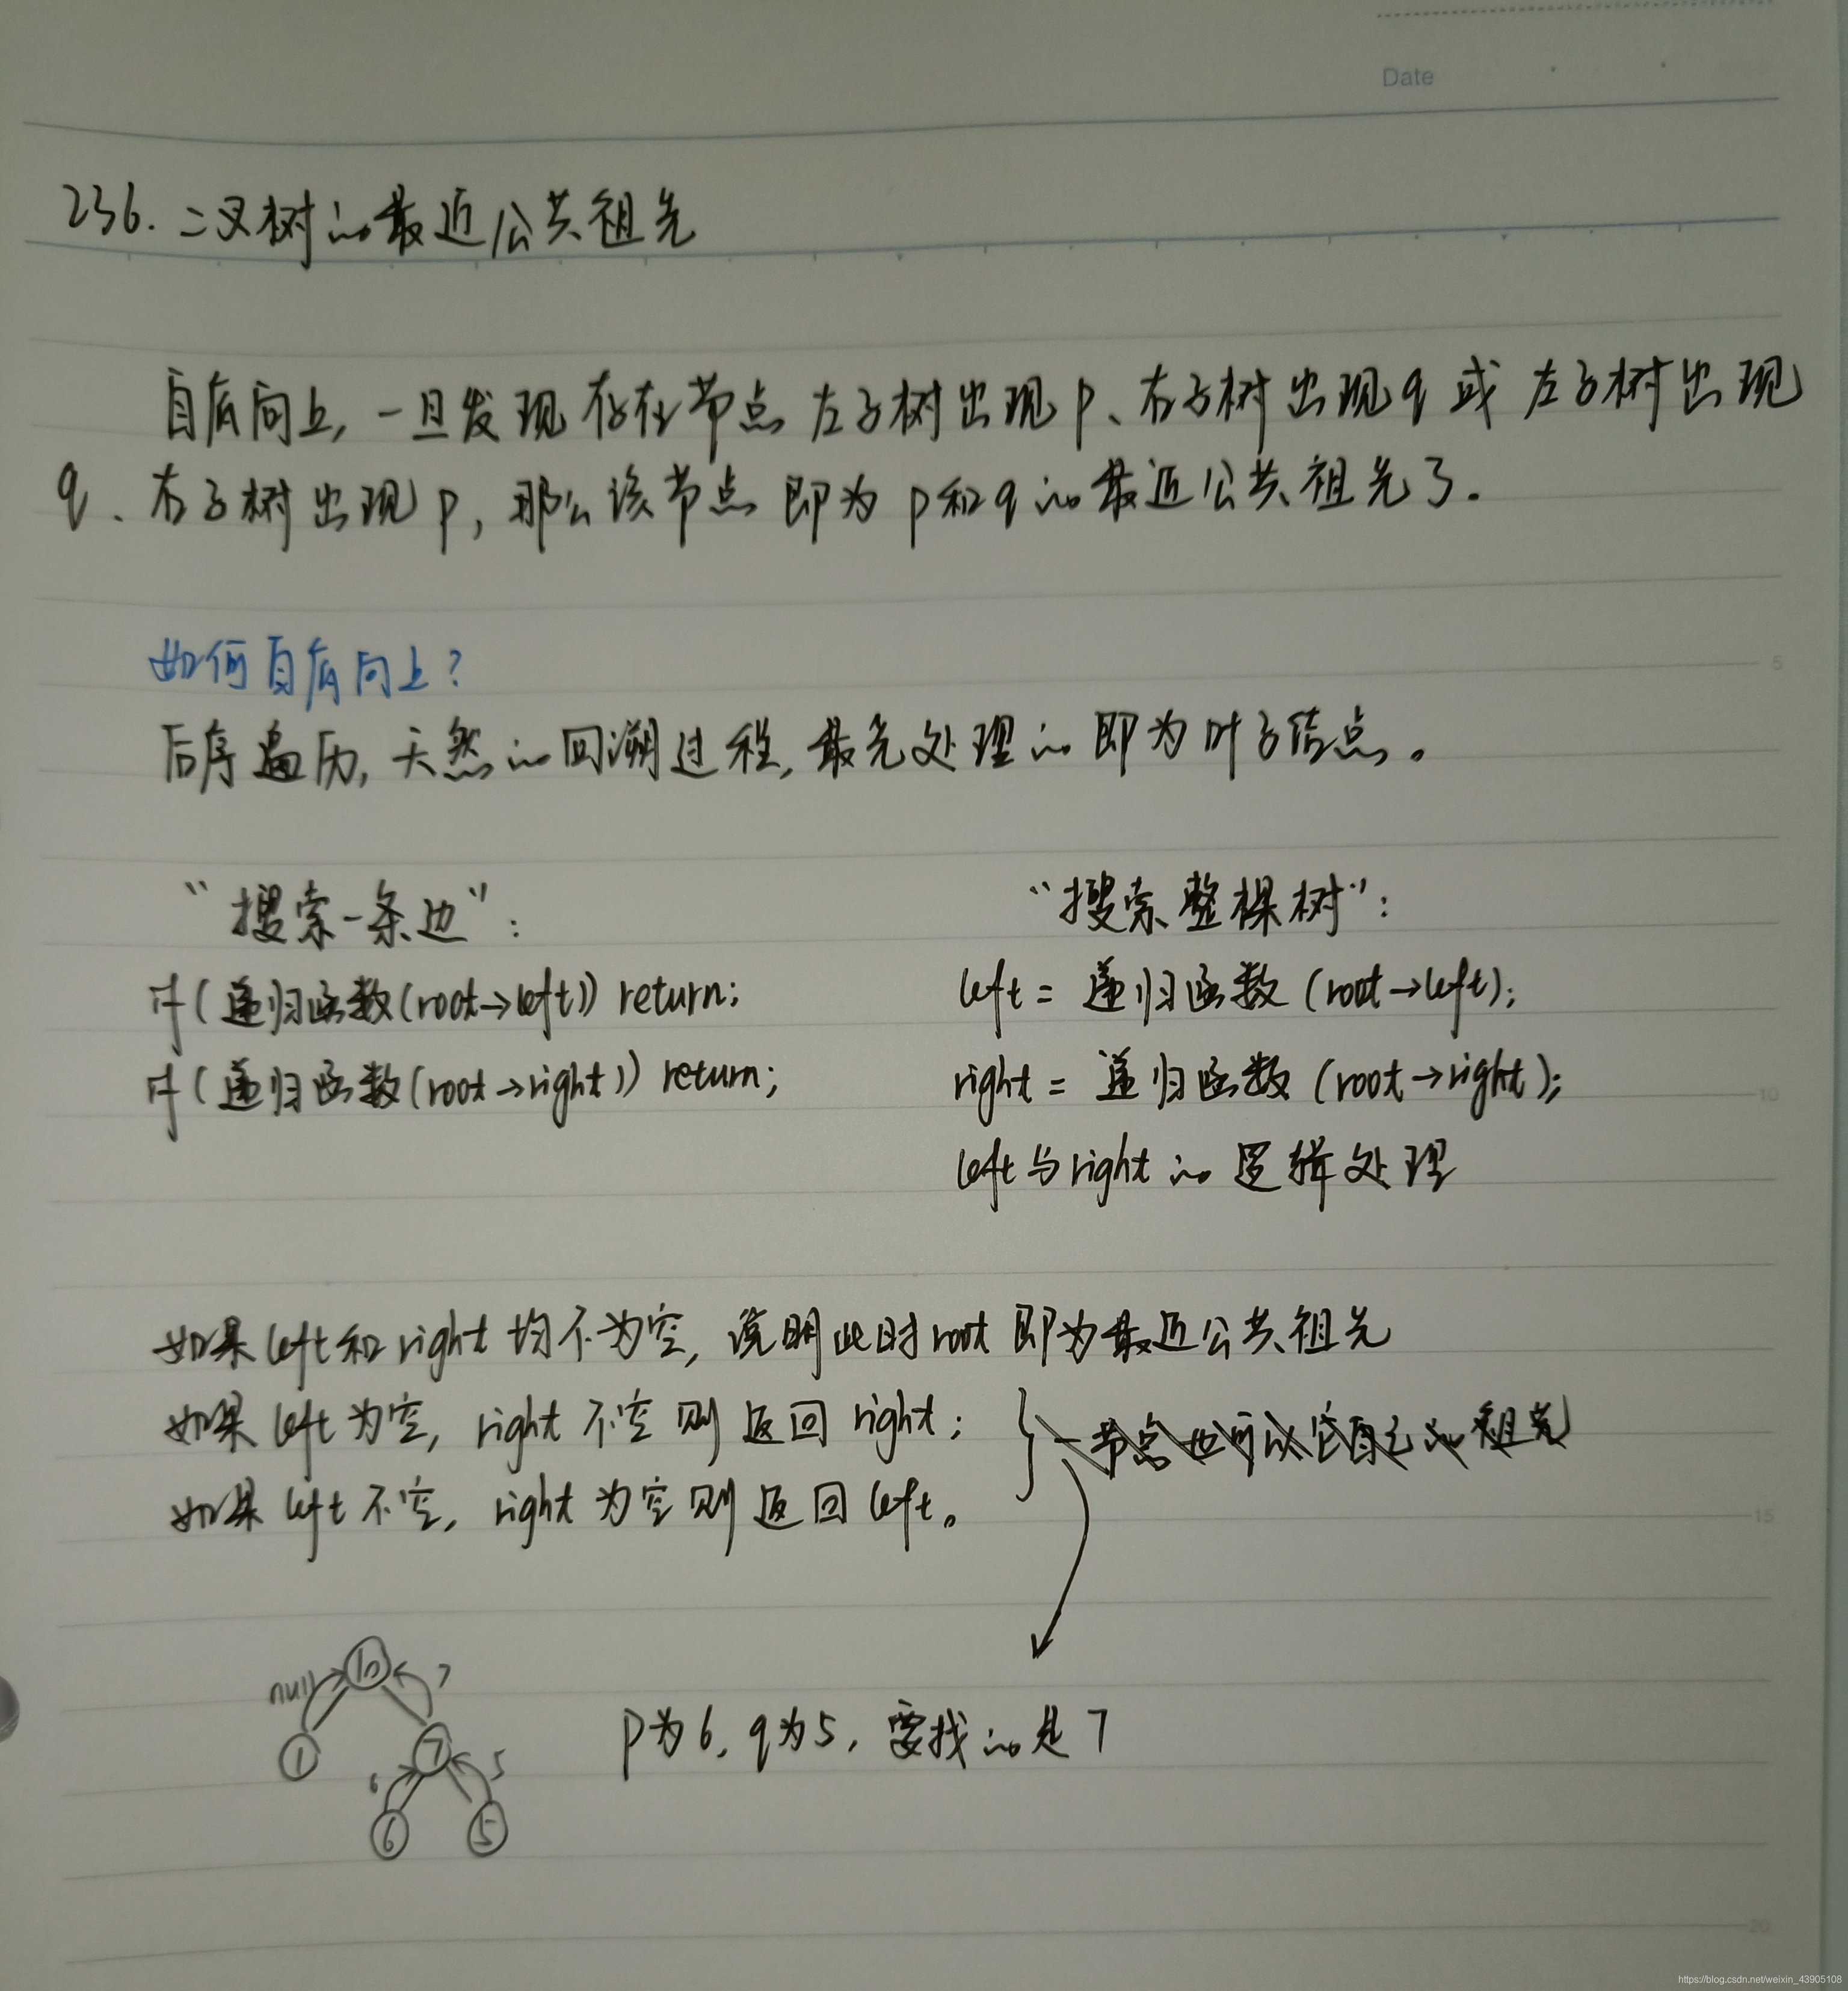 Date
236. 二叉树的最近公共祖先
自底向上, 一旦发现存在节点 左子树出现p、右子树出现q 或 左子树出现
q、右子树出现p, 那么该节点 即为 p和q的最近公共祖先了.
如何自底向上?
后序遍历, 天然的回溯过程, 最先处理的即为叶子结点。
5
“搜索一条边”:
if(递归函数(root→left)) return;
if(递归函数(root→right)) return;
“搜索整棵树”:
left = 递归函数 (root→left);
right = 递归函数 (root→right);
10
left与right的 逻辑处理
如果left和right均不为空, 说明此时root即为最近公共祖先
如果left为空, right不空则返回right;
如果left不空, right为空则返回left。
一节点也可以它自己的祖先
15
null 10 7
1 7
6 5
6 5
p为6, q为5, 要找的是7
20
https://blog.csdn.net/weixin_43905108